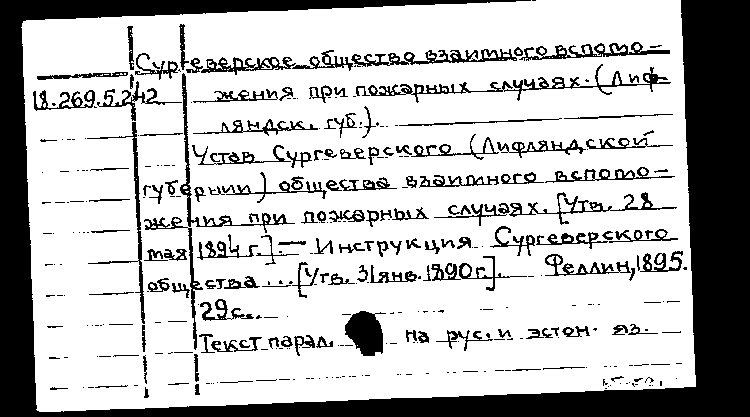 Сургеверское общество взаимного вспомо-
18.269.5.242 жения при пожарных случаях. (Лиф-
ляндск. губ.).
Устав Сургеверского (Лифляндской
губернии) общества взаимного вспомо-
жения при пожарных случаях. [Утв. 28
мая 1894 г.] — Инструкция Сургеверского
общества ... [Утв. 31 янв. 1890 г.]. Феллин, 1895.
29 с.
Текст парал. на рус. и эстон. яз.